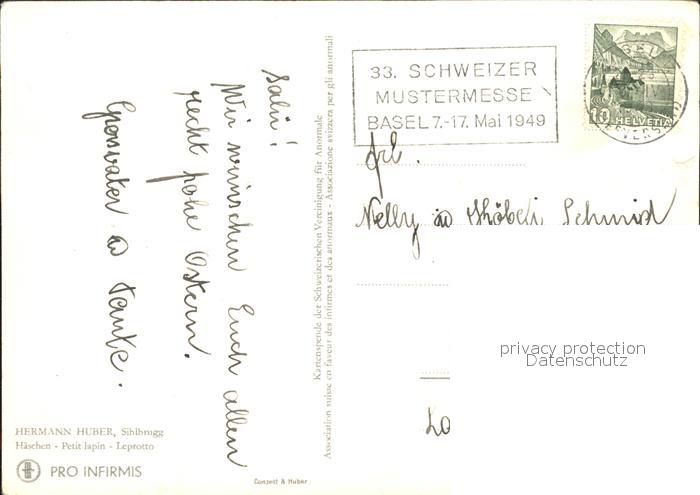 Salü!
Wir wünschen Euch allen
recht frohe Ostern.
Grossvater u Tante.
Kartenspende der Schweizerischen Vereinigung für Anormale
Association suisse en faveur des infirmes et des anormaux - Associazione svizzera per gli anormali
HERMANN HUBER, Sihlbrugg
Häschen - Petit lapin - Leprotto
PRO INFIRMIS
Conzett & Huber
33. SCHWEIZER
MUSTERMESSE
BASEL 7.-17. Mai 1949
10 HELVETIA
Frl.
Nelly u Schmid
privacy protection
Datenschutz